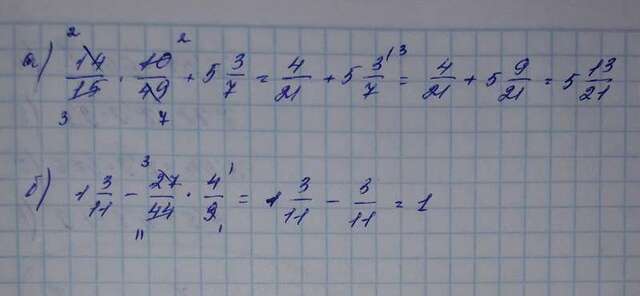 а) 14/15 · 10/49 + 5 3/7 = 4/21 + 5 3/7 = 4/21 + 5 9/21 = 5 13/21
б) 1 3/11 - 27/44 · 4/9 = 1 3/11 - 3/11 = 1